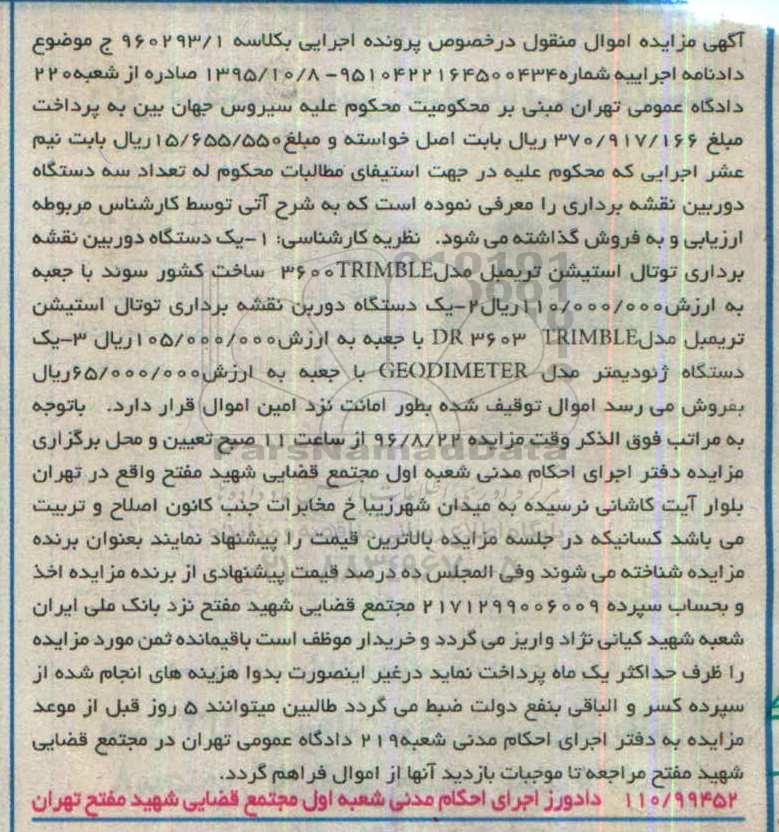 آگهی مزایده اموال منقول درخصوص پرونده اجرایی بکلاسه ۹۶۰۲۹۳/۱ ج موضوع
دادنامه اجراییه شماره۹۵۱۰۴۲۲۱۶۴۵۰۰۴۳۴- ۱۳۹۵/۱۰/۸ صادره از شعبه۲۲۰
دادگاه عمومی تهران مبنی بر محکومیت محکوم علیه سیروس جهان بین به پرداخت
مبلغ ۳۷۰/۹۱۷/۱۶۶ ریال بابت اصل خواسته و مبلغ۱۵/۶۵۵/۵۵۰ریال بابت نیم
عشر اجرایی که محکوم علیه در جهت استیفای مطالبات محکوم له تعداد سه دستگاه
دوربین نقشه برداری را معرفی نموده است که به شرح آتی توسط کارشناس مربوطه
ارزیابی و به فروش گذاشته می شود. نظریه کارشناسی: ۱-یک دستگاه دوربین نقشه
برداری توتال استیشن تریمبل مدلTRIMBLE۳۶۰۰ ساخت کشور سوئد با جعبه
به ارزش۱۱۰/۰۰۰/۰۰۰ریال۲-یک دستگاه دوربن نقشه برداری توتال استیشن
تریمبل مدلDR ۳۶۰۳ TRIMBLE با جعبه به ارزش۱۰۵/۰۰۰/۰۰۰ریال ۳-یک
دستگاه ژئودیمتر مدل GEODIMETER با جعبه به ارزش۶۵/۰۰۰/۰۰۰ریال
بفروش می رسد اموال توقیف شده بطور امانت نزد امین اموال قرار دارد. باتوجه
به مراتب فوق الذکر وقت مزایده ۹۶/۸/۲۲ از ساعت ۱۱ صبح تعیین و محل برگزاری
مزایده دفتر اجرای احکام مدنی شعبه اول مجتمع قضایی شهید مفتح واقع در تهران
بلوار آیت کاشانی نرسیده به میدان شهرزیبا خ مخابرات جنب کانون اصلاح و تربیت
می باشد کسانیکه در جلسه مزایده بالاترین قیمت را پیشنهاد نمایند بعنوان برنده
مزایده شناخته می شوند وفی المجلس ده درصد قیمت پیشنهادی از برنده مزایده اخذ
و بحساب سپرده ۲۱۷۱۲۹۹۰۰۶۰۰۹ مجتمع قضایی شهید مفتح نزد بانک ملی ایران
شعبه شهید کیانی نژاد واریز می گردد و خریدار موظف است باقیمانده ثمن مورد مزایده
را ظرف حداکثر یک ماه پرداخت نماید درغیر اینصورت بدوا هزینه های انجام شده از
سپرده کسر و الباقی بنفع دولت ضبط می گردد طالبین میتوانند ۵ روز قبل از موعد
مزایده به دفتر اجرای احکام مدنی شعبه۲۱۹ دادگاه عمومی تهران در مجتمع قضایی
شهید مفتح مراجعه تا موجبات بازدید آنها از اموال فراهم گردد.
۱۱۰/۹۹۴۵۲ دادورز اجرای احکام مدنی شعبه اول مجتمع قضایی شهید مفتح تهران
ParsNamadData